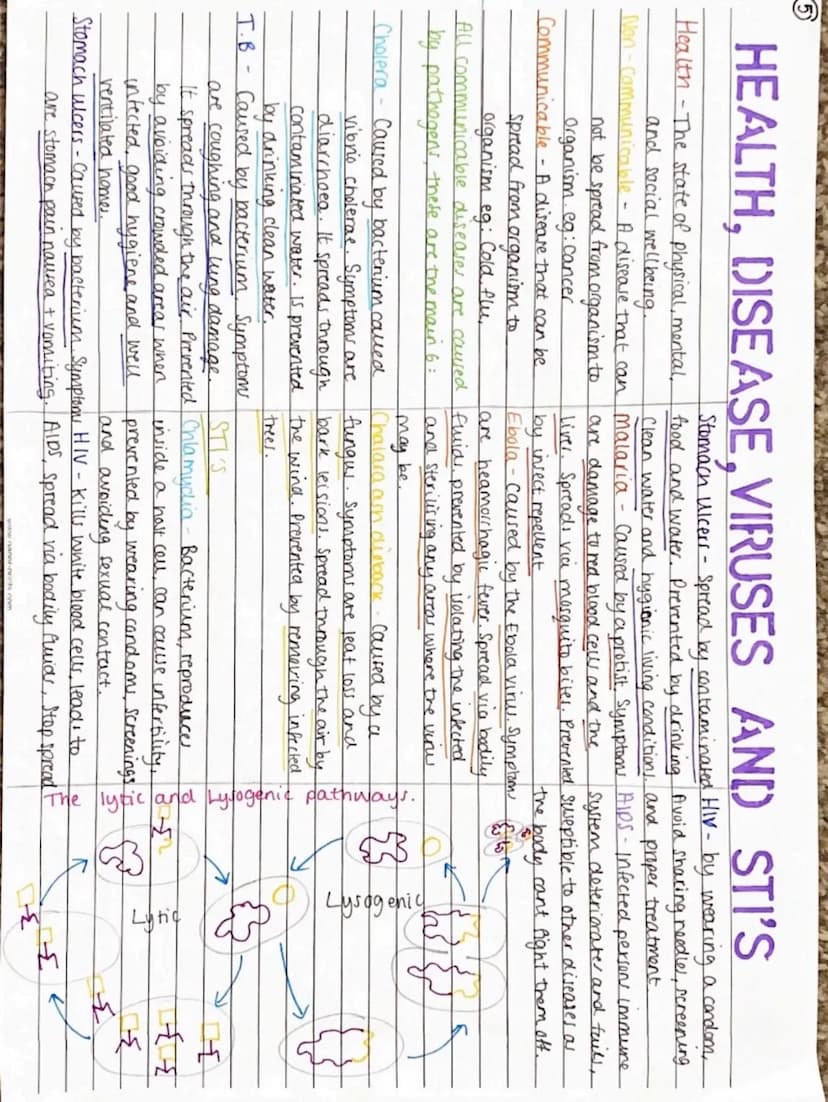 5
HEALTH, DISEASE, VIRUSES AND STI'S
Health - The state of physical, mental,
and social wellbeing
Non - communicable - A disease that can
not be spread from organism to
organism eg: cancer
Communicable - A disease that can be
spread from organism to
organism eg: Cold, flu,
All communicable diseases are caused
by pathogens, these are the main 6:
Cholera - Caused by bacterium called
vibrio cholerae. Symptoms are
diarrhoea. It spreads through
contaminated water. Is prevented
by drinking clean water.
T.B - Caused by bacterium. Symptoms
are coughing and lung damage.
It spreads through the air. Prevented
by avoiding crowded areas when
infected, good hygiene and well
ventilated homes.
Stomach ulcers - Caused by bacterium. Symptoms
are stomach pain nausea + vomiting.
Stomach Ulcers - Spread by contaminated
food and water. Prevented by drinking
clean water and hygienic living conditions.
Malaria - Caused by a protist. Symptoms
are damage to red blood cells and the
liver. Spreads via mosquito bites. Prevented
by insect repellent
Ebola - Caused by the Ebola virus. Symptoms
are heamorrhagic fever. Spread via bodily
fluids, prevented by isolating the infected
and sterilising any areas where the virus
may be.
Chalara ash dieback - Caused by a
fungus. Symptoms are leaf loss and
bark leisions. Spread through the air by
the wind. Prevented by removing infected
trees.
STI's
Chlamydia - Bacterium, reproduces
inside a host cell, can cause infertility,
prevented by wearing condoms, screenings
and avoiding sexual contact.
HIV - kills white blood cells, leads to
AIDS, spread via bodily fluids, stop spread
HIV - by wearing a condom,
Avoid sharing needles, screening
and proper treatment
AIDS - Infected persons immune
system deteriorates and fails,
suseptible to other diseases as
the body cant fight them off.
The lytic and Lysogenic pathways.
Lysogenic
Lytic